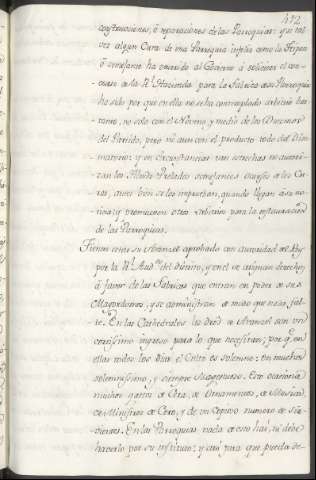 412
construcciones, ó reparaciones de las Parroquias: y si tal
vez algun Cura de una Parroquia infeliz como la
ó semejante ha ocurrido al Gobierno á solicitar el
de la Rl. Hacienda para la Fabrica de su Parroquia
ha sido por que en ella no se ha contemplado arbitrio bas-
tante, no solo con el Noveno, y medio de los Diezmos
del Partido, pero ni aun con el producto todo del Diez-
matorio: y en circunstancias tan estrechas no autori-
zan los Prelados semejantes à los Cu-
ras, antes bien se los impedirian, quando llegan á su no-
ticia, y promueven otro arbitrio para la restauracion
de las Parroquias.
Tienen estas su Aranzel aprobado con autoridad de Ley
por la Rl. Aud.ª del distrito, y en el se asignan derechos
á favor de las Fabricas que entran en poder de sus
Mayordomos, y se administran de modo que nada fal-
te. En las Cathedrales los dros. de Aranzel son un
cortissimo ingreso para lo que necesitan; por q.e en
ellas todos los dias el Culto es solemne; en muchos
solemnissimo, y siempre Esto ocasiona
muchos gastos de Cera, de Ornamentos, de Musicos,
de Ministros de Coro, y de un copioso numero de Sir-
vientes. En las Parroquias nada de esto hai, ni debe
hacerlo por su instituto: y assi para que pueda de-